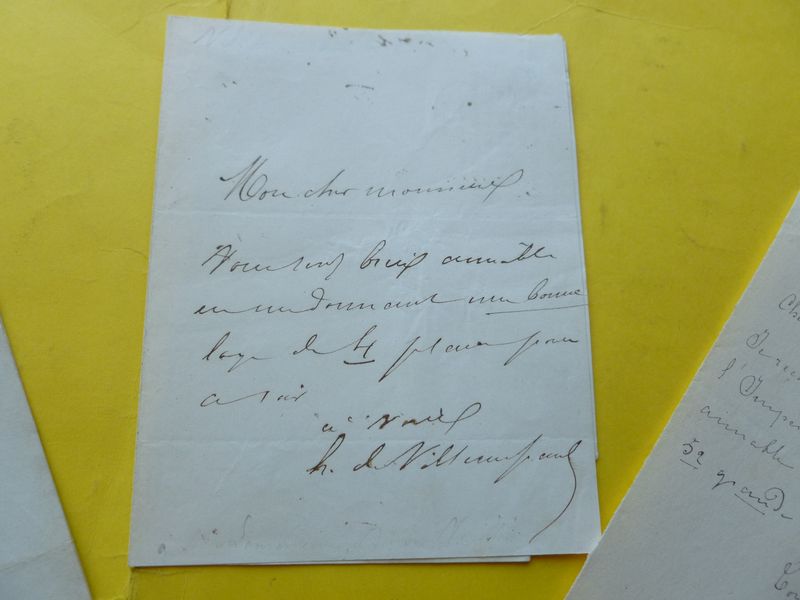 Mon cher monsieur
Vous serez bien aimable
en me donnant une bonne
loge de 4 places pour
ce soir
à vous
h. de Villemessant
Je
l'Impé
aimable
5e grand